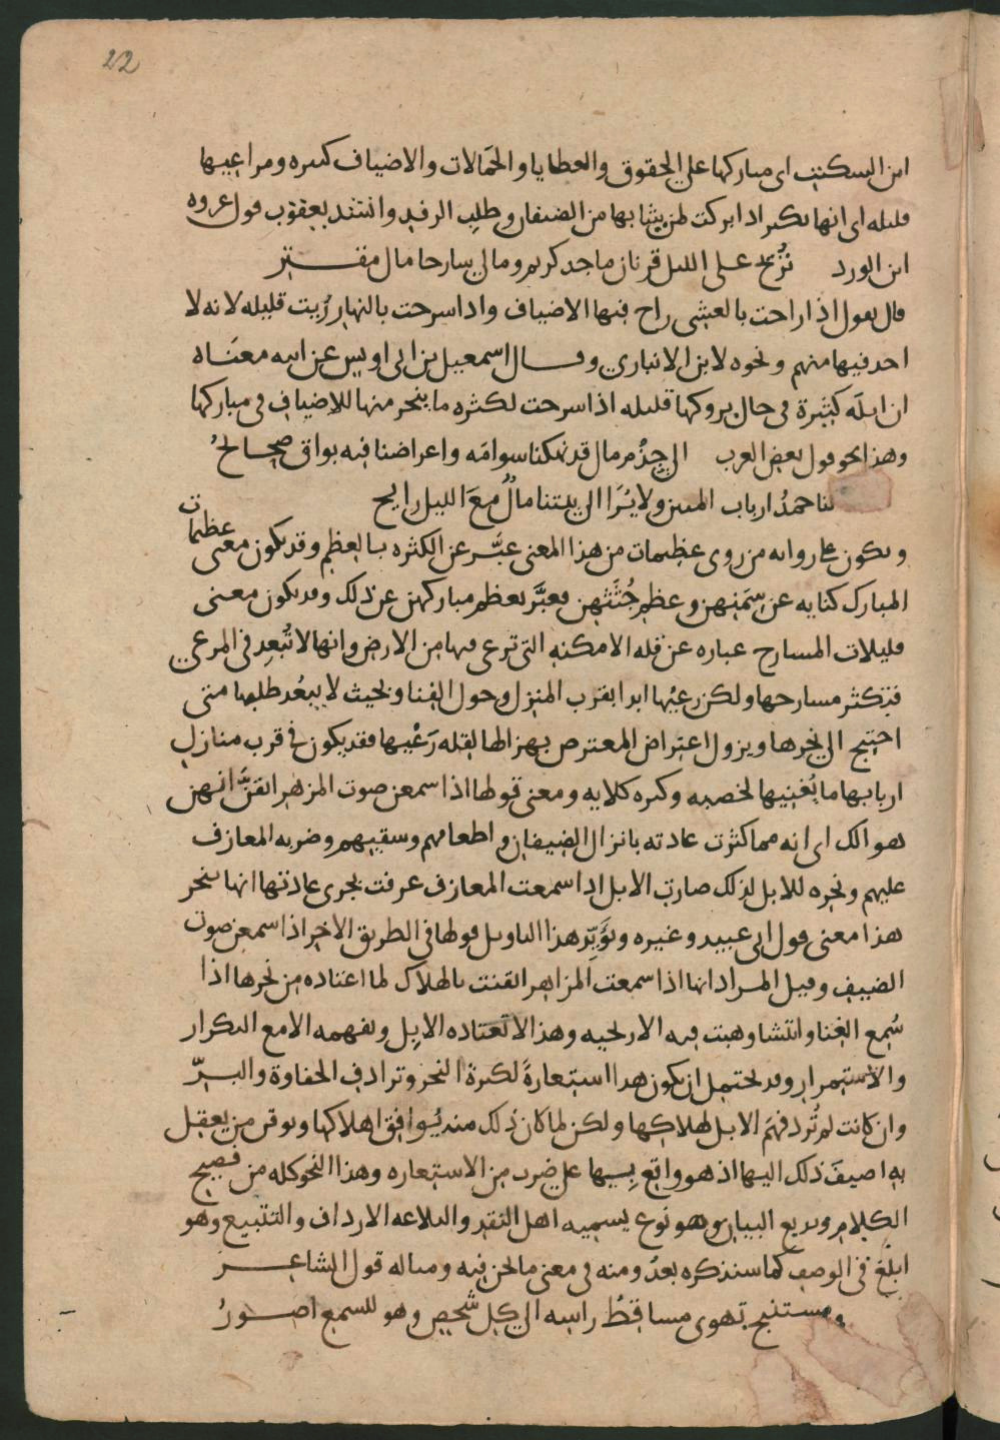 22
ابن السكيت اى مباركها على الحقوق والعطايا والحمالات والاضياف كثيره ومراعيها
قليله اى انها تكثر اذا بركت لمن ينتابها من الضيفان وطلب الرفد وانشد يعقوب قول عروه
ابن الورد تُرِيح على الليل قربان ماجد كريم ومالى سارحا مال مقتر
قال يقول اذا راحت بالعشى راح فيها الاضياف واذا سرحت بالنهار رُيت قليله لانه لا
احد فيها منهم ونحوه لابن الانبارى وقال اسمعيل بن ابى اويس عن ابيه معناه
ان ابله كثيرة فى حال بروكها قليله اذا سرحت لكثره ما ينحر منها للاضياف فى مباركها
وهذا نحو قول بعض العرب الى جِذْمِ مال قد نهكنا سوامَه واعراضنا فيه بواق صحائحُ
لنا حمدُ ارباب المئين ولا يُرَا الى بيتنا مالٌ مَعَ الليل رايح
ويكون على روايه من روى عظيمات من هذا المعنى عبَّر عن الكثره بالعظم وقد يكون معنى عظيمات
المبارك كنايه عن سِمَنِهن وعظم جُثَثِهن فعبَّر بعظم مباركهن عن ذلك وقد يكون معنى
قليلات المسارح عباره عن قله الامكنه التى ترعى فيها من الارض وانها لا تُبعِد فى المرعى
فتكثر مسارحها ولكن رعيُها ابدا بقرب المنزل وحول الفنا وبحيث لا يبعُد طلبها متى
احتيج الى نحرها ويزول اعتراض المعترض بهزالها لقله رَعْيها فقد يكون فى قرب منازل
اربابها ما يُغنيها لخصبه وكثره كلايه ومعنى قولها اذا سمعن صوت المزهر ايقنَّ انهن
هوالك اى انه مما كثرت عادته بانزال الضيفان واطعامهم وسقيهم وضربه المعازف
عليهم ونحره للابل لذلك صارت الابل اذا سمعت المعازف عرفت بجرى عادتها انها تنحر
هذا معنى قول ابى عبيد وغيره ويُؤيّد هذا التاويل قولها فى الطريق الاخر اذا سمعن صوت
الضيف وقيل المراد انها اذا سمعت المزاهر ايقنت بالهلاك لما اعتاده من نحرها اذا
سُمِع الغنا وانتشا وهبت فيه الاريحيه وهذا لا تعتاده الابل وتفهمه الا مع التكرار
والاستمرار وقد يحتمل ان يكون هذا استعارةً لكثرة النحر وترادف الحفاوة والبِرّ
وان كانت لم تُرد فهْمَ الابل لهلاكها ولكن لما كان ذلك منه يُوافق اهلاكها ويوقن من يعقل
به اضيفَ ذلك اليها اذ هو واقع بسببها على ضرب من الاستعاره وهذا النحو كله من فصيح
الكلام وبديع البيان وهو نوع يسميه اهل النقد والبلاغه الارداف والتتبيع وهو
ابلغ فى الوصف كما سنذكره بعدُ ومنه فى معنى ما نحن فيه ومثاله قول الشاعر
ومستنبح تهوى مساقطُ راسه الى كل شخص وهو للسمع اصورُ